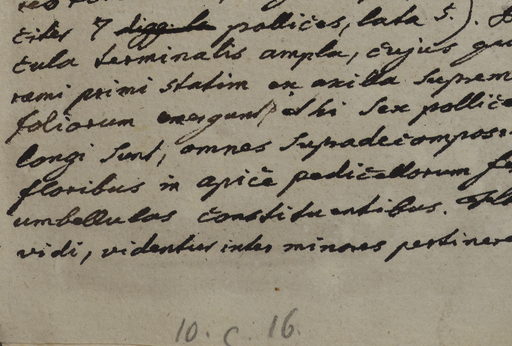 citer 7 digg. la pollices, lata 5.).
cula terminalis ampla, cujus
rami primi statim ex axilla Suprem
foliorum emergunt, et hi Sex pollice
longi Sunt, omnes Supradecompos
floribus in apice pedicellorum
umbellulas constituentibus.
vidi, videntur inter minores pertinere
10. c. 16.